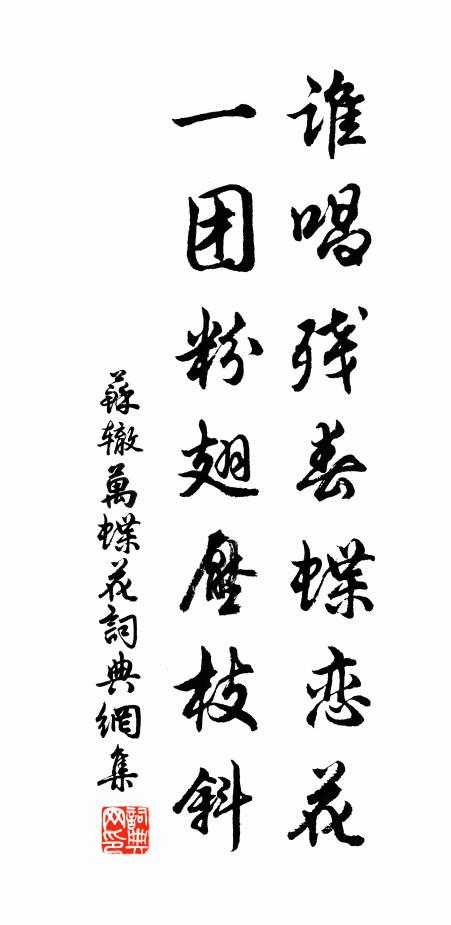 谁唱残春蝶恋花
一团粉翅压枝斜
蘇辙萬蝶花詞典網集
詞典网印